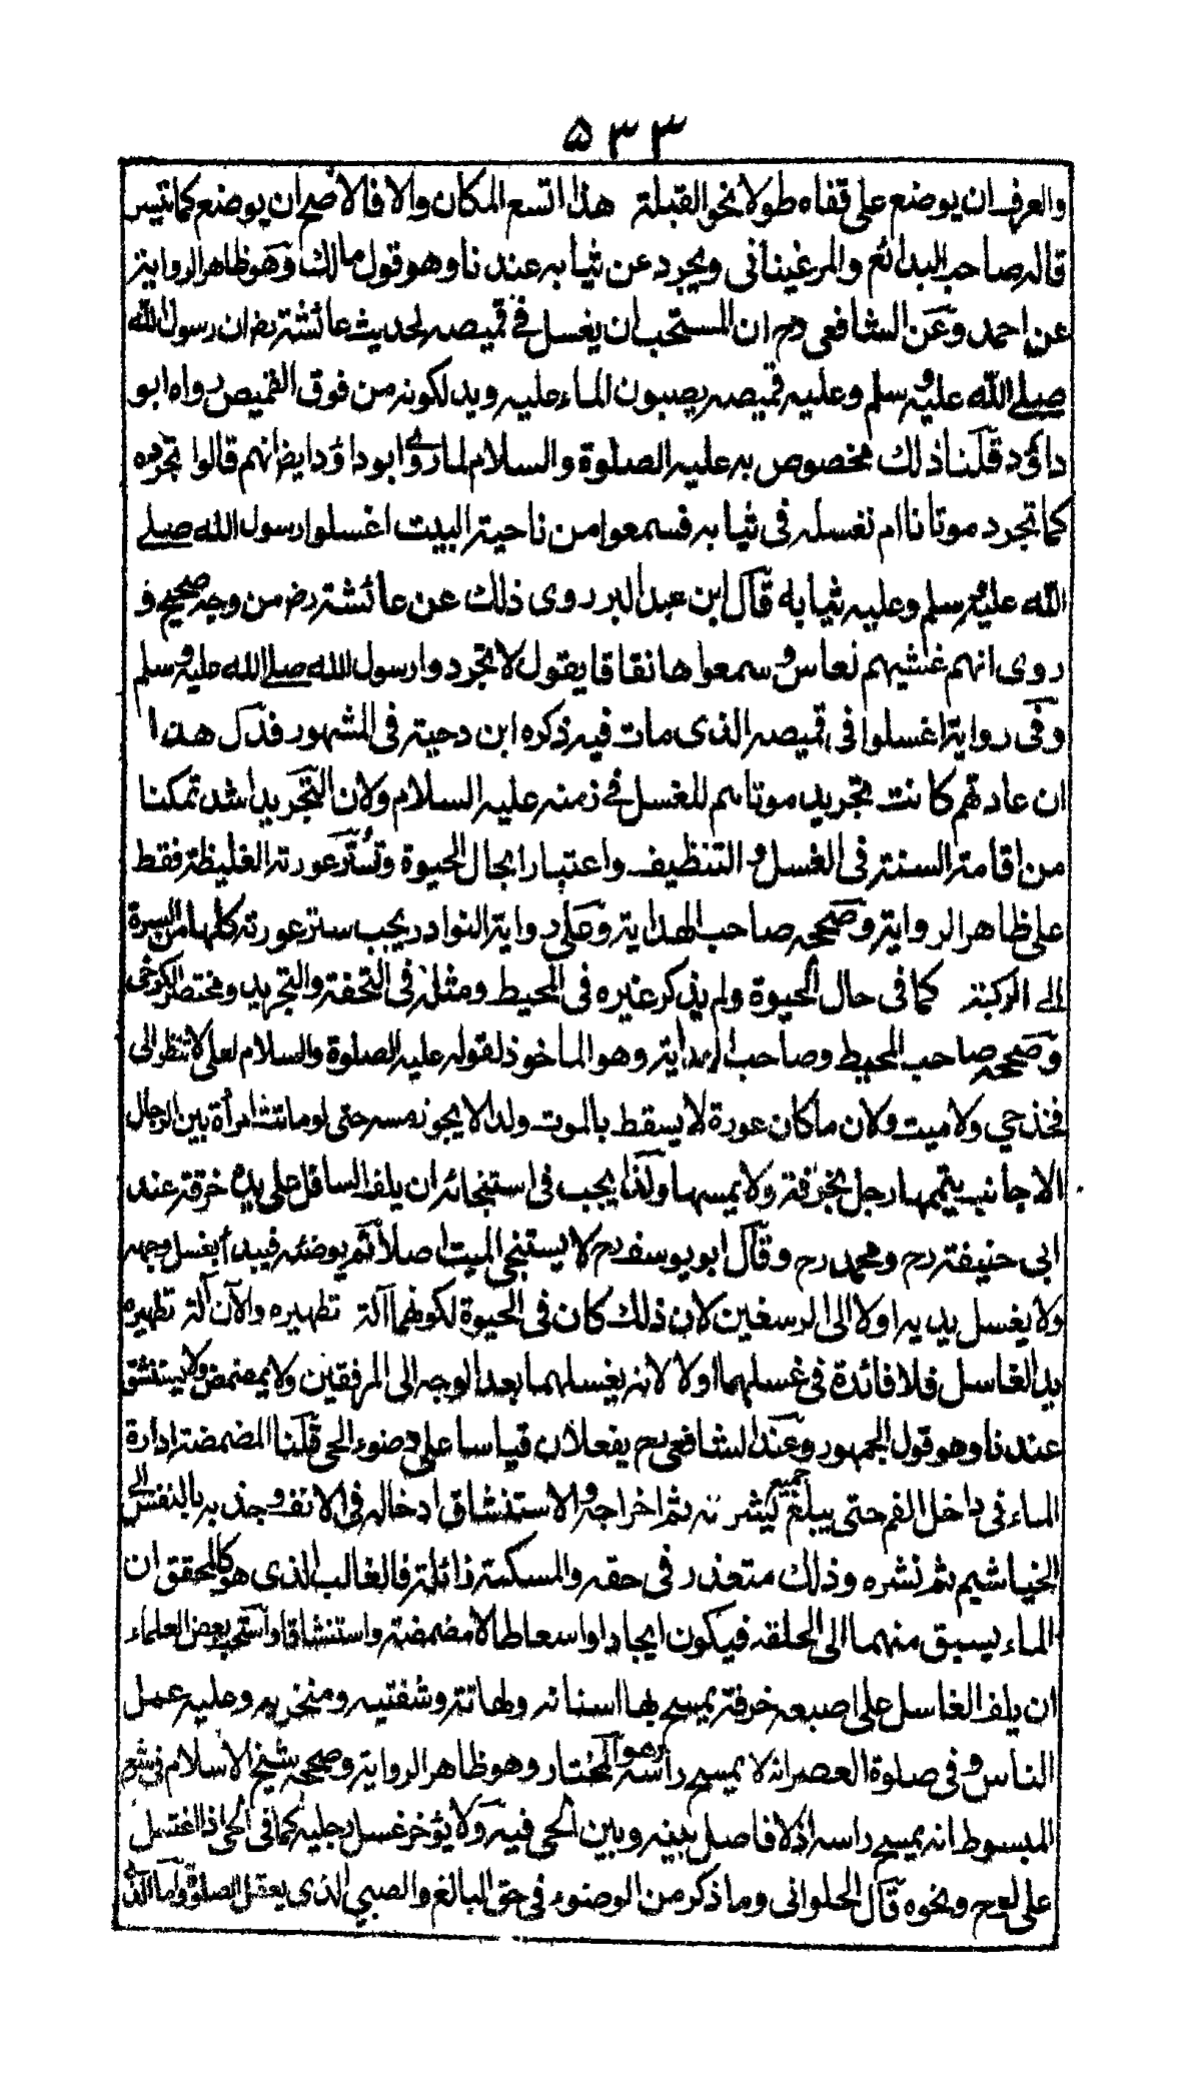 ۵۳۳
والعرف ان يوضع على قفاه طولا نحو القبلة هذا اتسع المكان والا فالاصح ان يوضع كما تيسر
قاله صاحب البدائع والمرغيناني ويجرد عن ثيابه عندنا وهو قول مالك وهو ظاهر الرواية
عن احمد وعن الشافعي رح ان المستحب ان يغسل في قميصه لحديث عائشة رض ان رسول الله
صلے الله عليه وسلم وعليه قميصه يصبون الماء عليه ويدلكونه من فوق القميص رواه ابو
داؤد قلنا ذلك مخصوص به عليه الصلوة والسلام لما روى ابو داؤد ايضا انهم قالوا نجرده
كما تجرد موتانا ام نغسله في ثيابه فسمعوا من ناحية البيت اغسلوا رسول الله صلے
الله عليه وسلم وعليه ثيابه قال ابن عبد البر روى ذلك عن عائشة رض من وجه صحيح و
روى انهم غشيهم نعاس وسمعوا هاتفا يقول لا تجردوا رسول الله صلے الله عليه وسلم
وفى رواية اغسلوا فى قميصه الذى مات فيه ذكره ابن دحية فى المشهور فدل هذا
ان عادتهم كانت تجريد موتاهم للغسل فے زمنه عليه السلام ولان التجريد اشد تمكنا
من اقامة السنة فى الغسل والتنظيف واعتبارا بحال الحيوة وتستر عورته الغليظة فقط
على ظاهر الرواية وصححه صاحب الهداية وعلى رواية النوادر يجب ستر عورته كلها من السرة
الے الركبة كما فى حال الحيوة ولم يذكر غيره فى المحيط ومثله فى التحفة والتجريد ومختصر الكرخى
وصححه صاحب المحيط وصاحب الهداية وهو الماخوذ لقوله عليه الصلوة والسلام لعلى لا تنظر الى
فخذ حي ولا ميت ولان ما كان عورة لا يسقط بالموت ولذا لا يجوز مسه حتى لو ماتت امرأة بين الرجال
الاجانب يتممها رجل بخرقة ولا يمسها وكذا يجب فى استنجائه ان يلف الساقل على يده خرقة عند
ابى حنيفة رح ومحمد رح وقال ابو يوسف رح لا يستنجى الميت اصلا ثم يوضئه فيبدأ بغسل وجهه
ولا يغسل يديه اولا الى الرسغين لان ذلك كان فى الحيوة لكونهما آلة تطهيره والآن آلة تطهيره
يد الغاسل فلا فائدة فى غسلهما اولا لانه يغسلهما بعد الوجه الى المرفقين ولا يمضمض ولا يستنشق
عندنا وهو قول الجمهور وعند الشافعى رح يفعلان قياسا على وضوء الحى قلنا المضمضة ادارة
الماء فى داخل الفم حتى يبلغ جميع ثم اخراجه والاستنشاق ادخاله فى الانف وجذبه بالنفس الى
الخياشيم ثم نشره وذلك متعذر فى حقه والمسكة زائلة فالغالب الذى هو كالمحقق ان
الماء يسبق منهما الى الحلقه فيكون ايجادا واسعاطا لا مضمضة واستنشاقا واستحب بعض العلماء
ان يلف الغاسل على اصبعه خرقة يمسح بها اسنانه ولهاته وشفتيه ومنخريه وعليه عمل
الناس وفى صلوة العصر انه لا يمسح رأسه هو المختار وهو ظاهر الرواية وصححه شيخ الاسلام فى شرح
المبسوط انه يمسح راسه اذ لا فاصل بينه وبين الحى فيه ولا يؤخر غسل رجليه كما فى الحى اذا اغتسل
على لوح ونحوه قال الحلوانى وما ذكر من الوضوء فى حق البالغ والصبي الذى يعقل الصلوة واما الذى